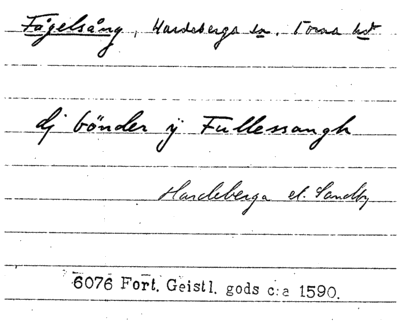 Fågelsång, Hardeberga sn. Torna hd
dj bönder ÿ Fullessangh
Hardeberga el. Sandby
6076 Fort. Geistl. gods c:a 1590.